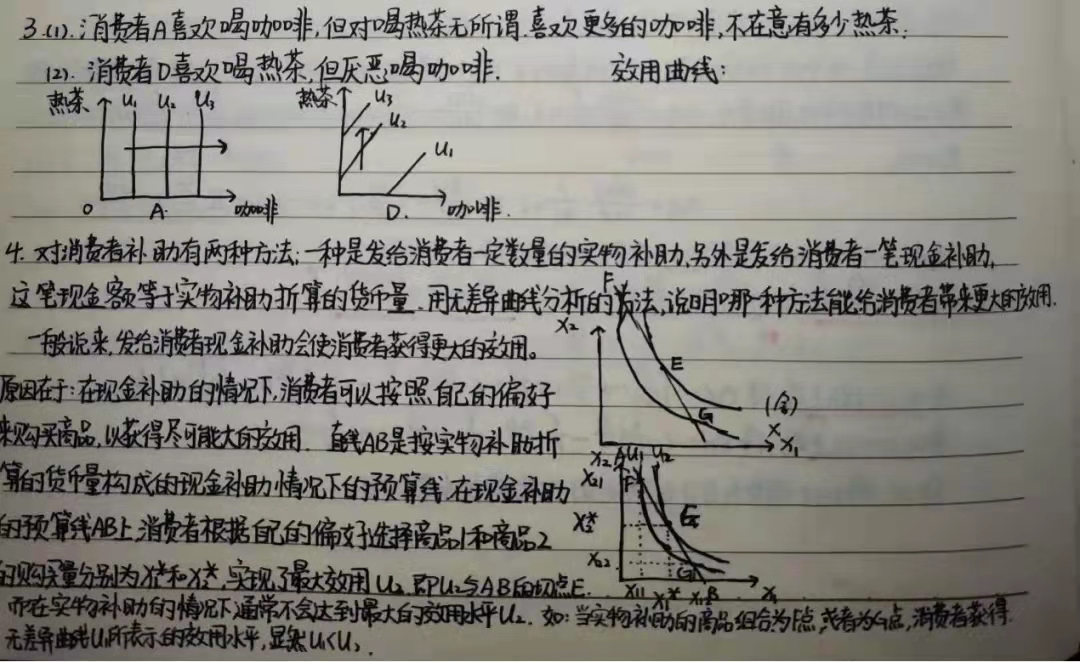 3.(1).消费者A喜欢喝咖啡,但对喝热茶无所谓.喜欢更多的咖啡,不在意有多少热茶.
(2).消费者D喜欢喝热茶,但厌恶喝咖啡. 效用曲线:
热茶 U₁ U₂ U₃ 热茶 U₃ U₂ U₁
O A. 咖啡 D. 咖啡.
4.对消费者补助有两种方法:一种是发给消费者一定数量的实物补助,另外是发给消费者一笔现金补助,
这笔现金额等于实物补助折算的货币量.用无差异曲线分析的方法,说明哪一种方法能给消费者带来更大的效用.
一般说来,发给消费者现金补助会使消费者获得更大的效用。
原因在于:在现金补助的情况下,消费者可以按照自己的偏好
来购买商品,以获得尽可能大的效用. 直线AB是按实物补助折
算的货币量构成的现金补助情况下的预算线.在现金补助
的预算线AB上,消费者根据自己的偏好选择商品1和商品2
的购买量分别为X₁*和X₂*,实现了最大效用U₂.即U₂与AB的切点E.
而在实物补助的情况下通常不会达到最大的效用水平U₂. 如:当实物补助的商品组合为F点,或者为G点,消费者获得
无差异曲线U₁所表示的效用水平,显然U₁<U₂.
X₂ F E G X₁
X₂ A U₁ U₂
X₂₁ F
X₂* E
X₂₂ G
X₁₁ X₁* X₁₂ B X₁